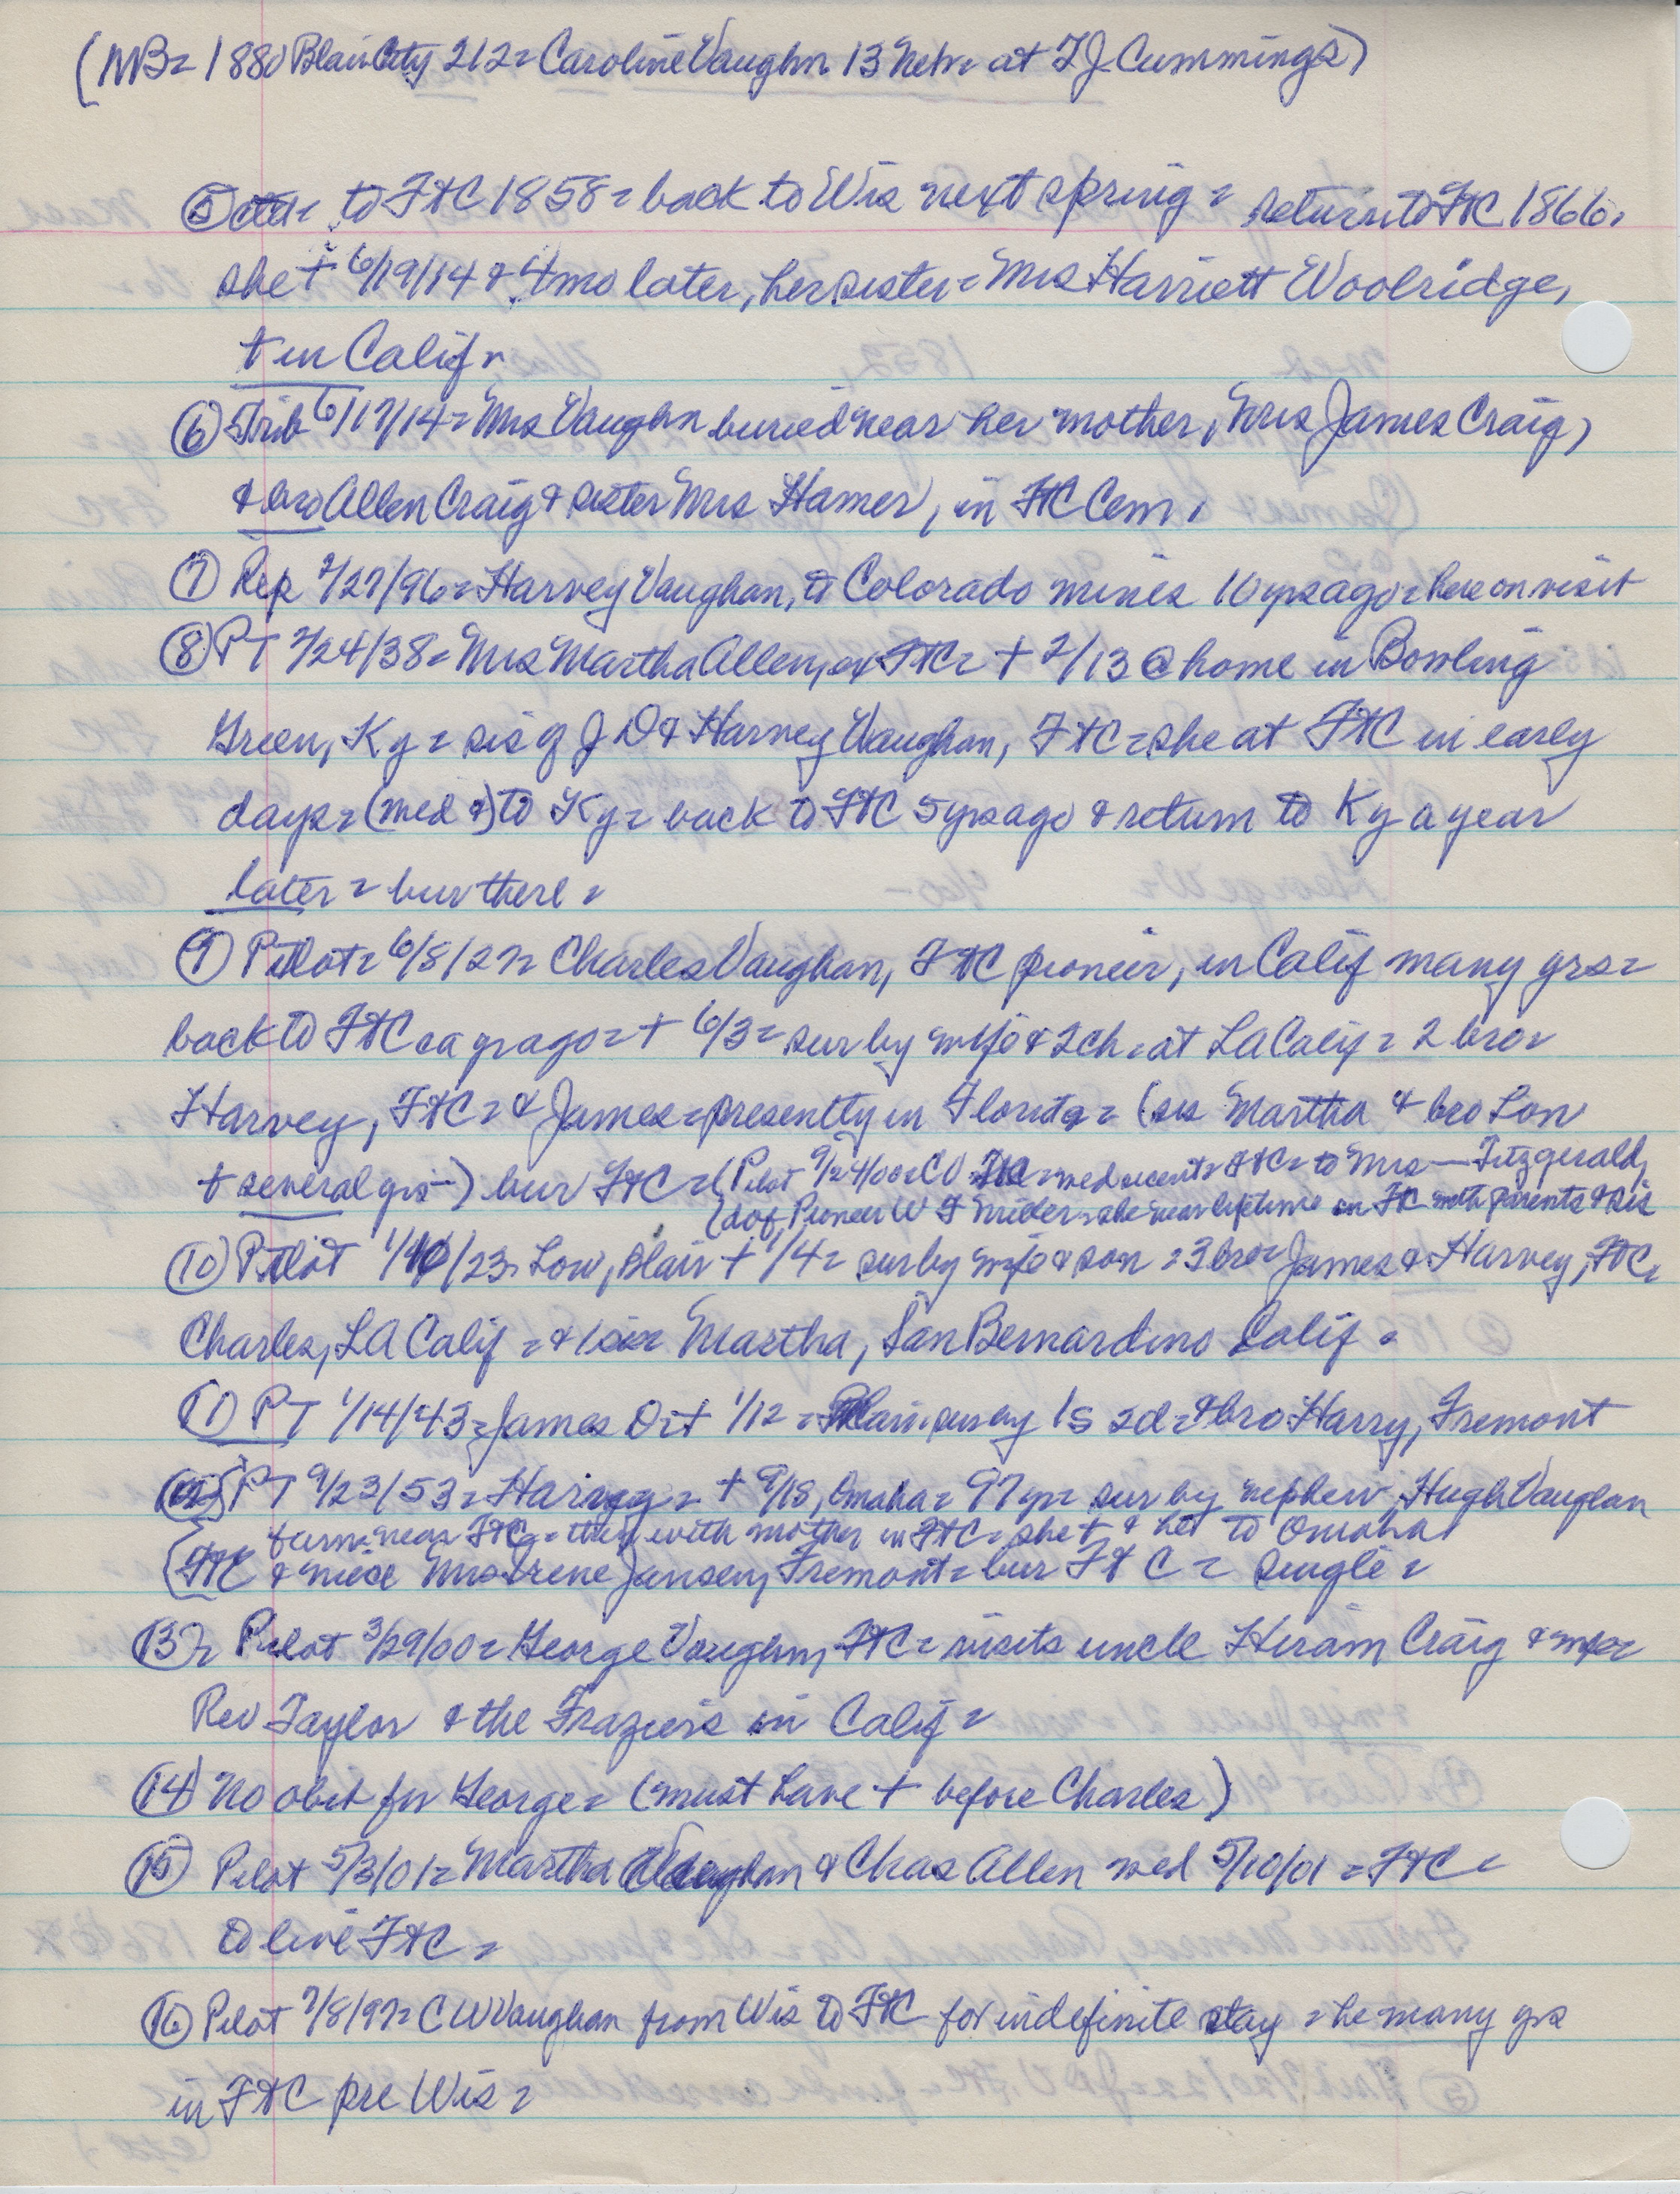 (NB= 1880 Blair City 212= Caroline Vaughn 13 Nebr= at T J Cummings)
⑤ to FtC 1858= back to Wis next spring= return to FtC 1866,
she + 6/19/14 & 4 mo later, her sister= Mrs Harriett Woolridge,
+ in Calif=
⑥ Trib 6/17/14= Mrs Vaughn buried near her mother, Mrs James Craig,
& bro Allen Craig & sister Mrs Hamer, in FtC Cem,
⑦ Rep 2/27/96= Harvey Vaughan, to Colorado mines 10 yrs ago= here on visit
⑧ PT 2/24/38= Mrs Martha Allen, ex FtC= + 2/13 @ home in Bowling
Green, Ky= sis of J D & Harvey Vaughan, FtC= she at FtC in early
days= (med &) to Ky= back to FtC 5 yrs ago & return to Ky a year
later= bur there=
⑨ Pilot= 6/8/27= Charles Vaughan, FtC pioneer, in Calif many yrs=
back to FtC ca yr ago= + 6/3= sur by wife & 2 ch= at LA Calif= 2 bro=
Harvey, FtC= & James= presently in Florida= (sis Martha & bro Lon
+ several yrs-) bur FtC= (Pilot 9/24/00= CV FtC= med recently FtC= to Mrs — Fitzgerald,
(d of Pioneer W F she near lifetime in FtC with parents & sis
⑩ Pilot 1/10/23= Low, Blair + 1/4= sur by wife & son= 3 bro= James & Harvey, FtC=
Charles, LA Calif= & 1 sis= Martha, San Bernardino Calif=
⑪ PT 1/14/43= James D= + 1/12= Blair= sur by 1s 2d= & bro Harry, Fremont
⑫ PT 9/23/53= Harvey= + 9/18, Omaha= 97 yr= sur by nephew, Hugh Vaughan
farm= near FtC= then with mother in FtC= she + & he to Omaha
FtC & niece Mrs Irene Jansen, Fremont= bur Ft C= single=
⑬= Pilot 3/29/00= George Vaughn, FtC= visits uncle Hiram Craig & wife=
Rev Taylor & the Fraziers in Calif=
⑭ No obit for George= (must have + before Charles)
⑮ Pilot 5/3/01= Martha Vaughan & Chas Allen med 5/10/01= FtC=
to live FtC=
⑯ Pilot 7/8/97= C W Vaughan from Wis to FtC for indefinite stay= he many yrs
in FtC pre Wis=